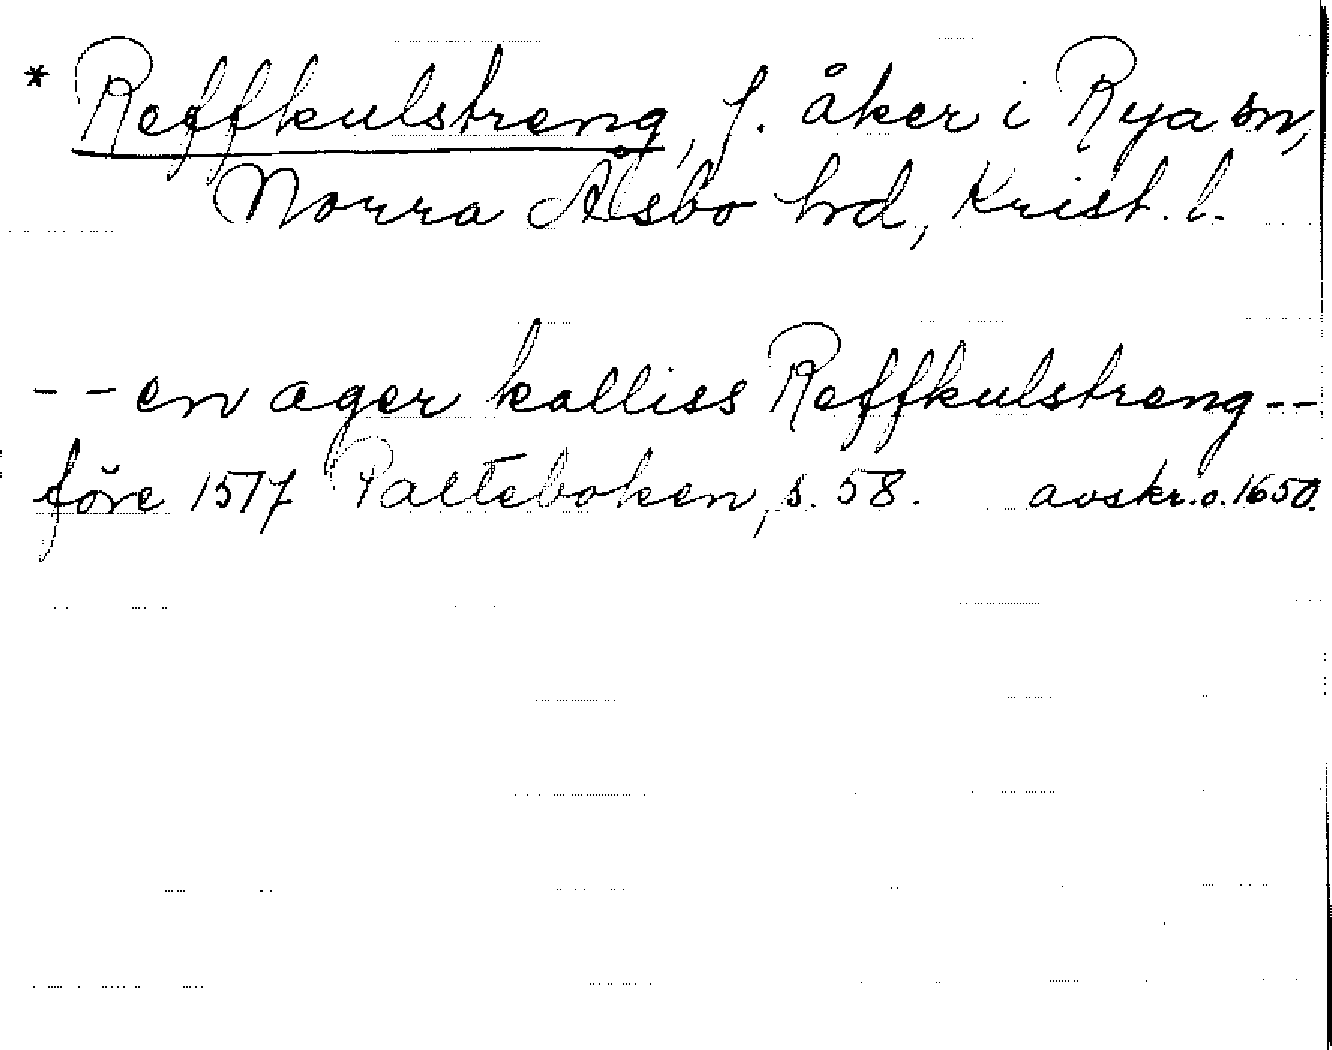 * Reffkulstreng, f. åker i Rya sn,
Norra Åsbo hrd, Krist. l.
-- en ager kalliss Reffkulstreng --
före 1517 Palteboken, s. 58. avskr. o. 1650.